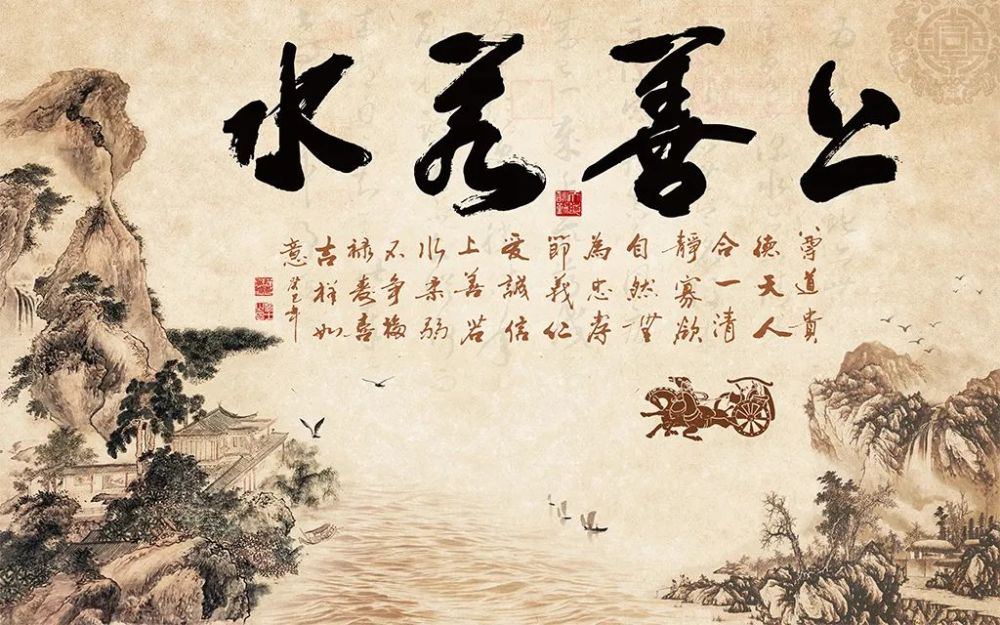 上善若水
尊道貴
德天人
合一清
靜寡欲
自然無
為忠孝
節義仁
愛誠信
上善若
水柔弱
不争福
禄壽喜
吉祥如
意
癸巳年